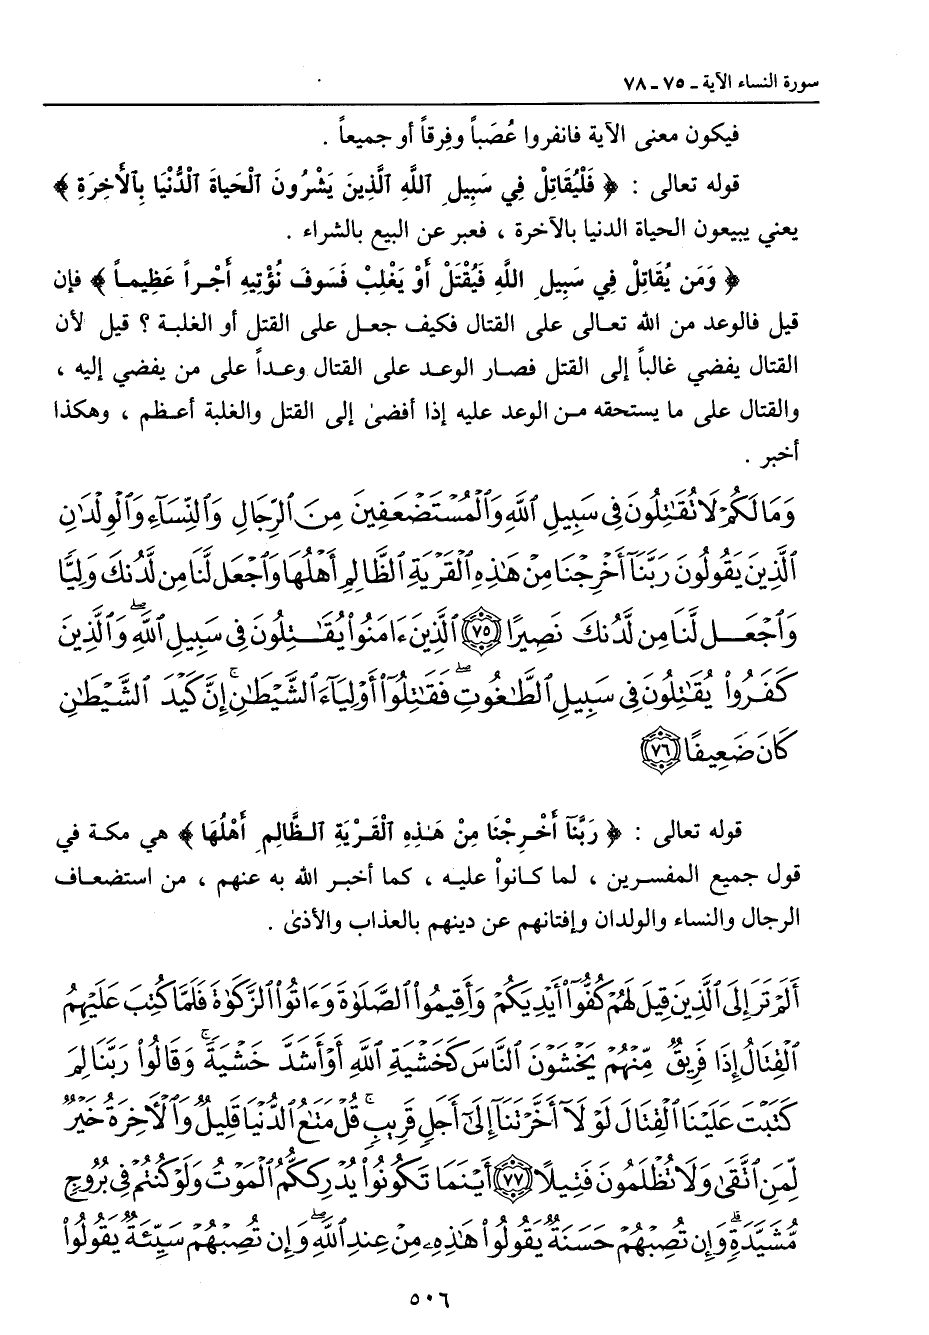 سورة النساء الآية ـ ٧٥ ـ ٧٨
فيكون معنى الآية فانفروا عُصَباً وفِرقاً أو جميعاً .
قوله تعالى : ﴿ فَلْيُقَاتِلْ فِي سَبِيلِ اللَّهِ الَّذِينَ يَشْرُونَ الْحَيَاةَ الْدُّنْيَا بِالْأَخِرَةِ ﴾
يعني يبيعون الحياة الدنيا بالآخرة ، فعبر عن البيع بالشراء .
﴿ وَمَن يُقَاتِلْ فِي سَبِيلِ اللَّهِ فَيُقْتَلْ أَوْ يَغْلِبْ فَسَوفَ نُؤْتِيهِ أَجْراً عَظِيماً ﴾ فإن
قيل فالوعد من الله تعالى على القتال فكيف جعل على القتل أو الغلبة ؟ قيل لأن
القتال يفضي غالباً إلى القتل فصار الوعد على القتال وعداً على من يفضي إليه ،
والقتال على ما يستحقه من الوعد عليه إذا أفضىٰ إلى القتل والغلبة أعظم ، وهكذا
أخبر .
وَمَا لَكُمْ لَا تُقَٰتِلُونَ فِى سَبِيلِ ٱللَّهِ وَٱلْمُسْتَضْعَفِينَ مِنَ ٱلرِّجَالِ وَٱلنِّسَآءِ وَٱلْوِلْدَٰنِ
ٱلَّذِينَ يَقُولُونَ رَبَّنَآ أَخْرِجْنَا مِنْ هَٰذِهِ ٱلْقَرْيَةِ ٱلظَّالِمِ أَهْلُهَا وَٱجْعَل لَّنَا مِن لَّدُنكَ وَلِيًّا
وَٱجْعَل لَّنَا مِن لَّدُنكَ نَصِيرًا ٧٥ ٱلَّذِينَ ءَامَنُوا۟ يُقَٰتِلُونَ فِى سَبِيلِ ٱللَّهِ ۖ وَٱلَّذِينَ
كَفَرُوا۟ يُقَٰتِلُونَ فِى سَبِيلِ ٱلطَّٰغُوتِ ۖ فَقَٰتِلُوٓا۟ أَوْلِيَآءَ ٱلشَّيْطَٰنِ ۚ إِنَّ كَيْدَ ٱلشَّيْطَٰنِ
كَانَ ضَعِيفًا ٧٦
قوله تعالى : ﴿ رَبَّنَآ أَخْرِجْنَا مِنْ هَٰذِهِ الْقَرْيَةِ الظَّالِمِ أَهْلُهَا ﴾ هي مكة في
قول جميع المفسرين ، لما كانواْ عليه ، كما أخبر الله به عنهم ، من استضعاف
الرجال والنساء والولدان وإفتانهم عن دينهم بالعذاب والأذىٰ .
أَلَمْ تَرَ إِلَى ٱلَّذِينَ قِيلَ لَهُمْ كُفُّوٓا۟ أَيْدِيَكُمْ وَأَقِيمُوا۟ ٱلصَّلَوٰةَ وَءَاتُوا۟ ٱلزَّكَوٰةَ فَلَمَّا كُتِبَ عَلَيْهِمُ
ٱلْقِتَالُ إِذَا فَرِيقٌ مِّنْهُمْ يَخْشَوْنَ ٱلنَّاسَ كَخَشْيَةِ ٱللَّهِ أَوْ أَشَدَّ خَشْيَةً ۚ وَقَالُوا۟ رَبَّنَا لِمَ
كَتَبْتَ عَلَيْنَا ٱلْقِتَالَ لَوْلَآ أَخَّرْتَنَآ إِلَىٰٓ أَجَلٍ قَرِيبٍ ۗ قُلْ مَتَٰعُ ٱلدُّنْيَا قَلِيلٌ وَٱلْءَاخِرَةُ خَيْرٌ
لِّمَنِ ٱتَّقَىٰ وَلَا تُظْلَمُونَ فَتِيلًا ٧٧ أَيْنَمَا تَكُونُوا۟ يُدْرِككُّمُ ٱلْمَوْتُ وَلَوْ كُنتُمْ فِى بُرُوجٍ
مُّشَيَّدَةٍ ۗ وَإِن تُصِبْهُمْ حَسَنَةٌ يَقُولُوا۟ هَٰذِهِۦ مِنْ عِندِ ٱللَّهِ ۖ وَإِن تُصِبْهُمْ سَيِّئَةٌ يَقُولُوا۟
٥٠٦